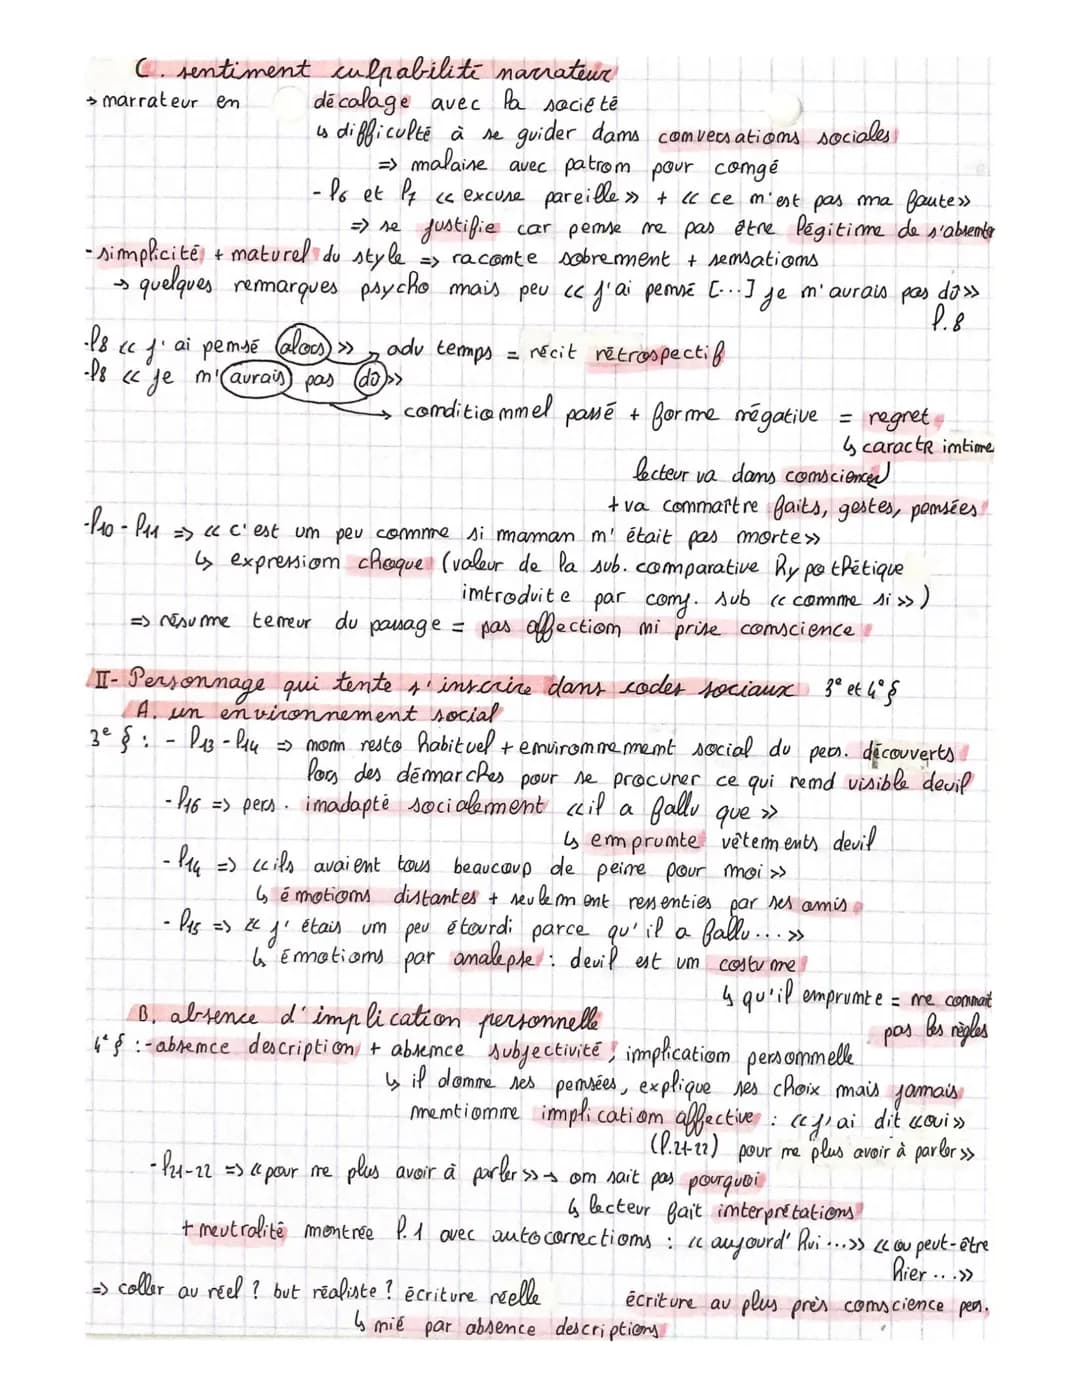 C. sentiment culpabilité narrateur
→ narrateur en décalage avec la société
↳ difficulté à se guider dans conversations sociales
=> malaise avec patron pour congé
- l6 et l7 << excuse pareille >> + << ce n'est pas ma faute >>
=> se justifie car pense ne pas être légitime de s'absenter
- simplicité + naturel du style => raconte sobrement + sensations
→ quelques remarques psycho mais peu << j'ai pensé [...] je n'aurais pas dû >>
l.8
- l8 << j'ai pensé alors >> → adv temps = récit rétrospectif
- l8 << je n'aurais pas dû >>
→ conditionnel passé + forme négative = regret
↳ caractR intime
lecteur va dans conscience
+ va connaître faits, gestes, pensées
- l10 - l11 => << c'est un peu comme si maman n'était pas morte >>
↳ expression choque (valeur de la sub. comparative hypothétique
introduite par conj. sub << comme si >>)
=> résume teneur du passage = pas affection ni prise conscience
II- Personnage qui tente s'inscrire dans codes sociaux 3e et 4e §
A. un environnement social
3e § : - l13 - l14 => nom resto habituel + environnement social du pers. découverts
lors des démarches pour se procurer ce qui rend visible deuil
- l16 => pers. inadapté socialement << il a fallu que >>
↳ emprunte vêtements deuil
- l14 => << ils avaient tous beaucoup de peine pour moi >>
↳ émotions distantes + seulement ressenties par ses amis
- l15 => << j'étais un peu étourdi parce qu'il a fallu... >>
↳ Émotions par analepse : deuil est un costume
↳ qu'il emprunte = ne connait
pas les règles
B. absence d'implication personnelle
4e § : - absence description + absence subjectivité, implication personnelle
↳ il donne ses pensées, explique ses choix mais jamais
mentionne implication affective : << j'ai dit << oui >>
(l.21-22) pour ne plus avoir à parler >>
- l21-22 => << pour ne plus avoir à parler >> → on sait pas pourquoi
↳ lecteur fait interprétations
+ neutralité montrée l.1 avec autocorrections : << aujourd'hui... >> << ou peut-être
hier... >>
=> coller au réel ? but réaliste ? écriture réelle écriture au plus près conscience pers.
↳ nié par absence descriptions